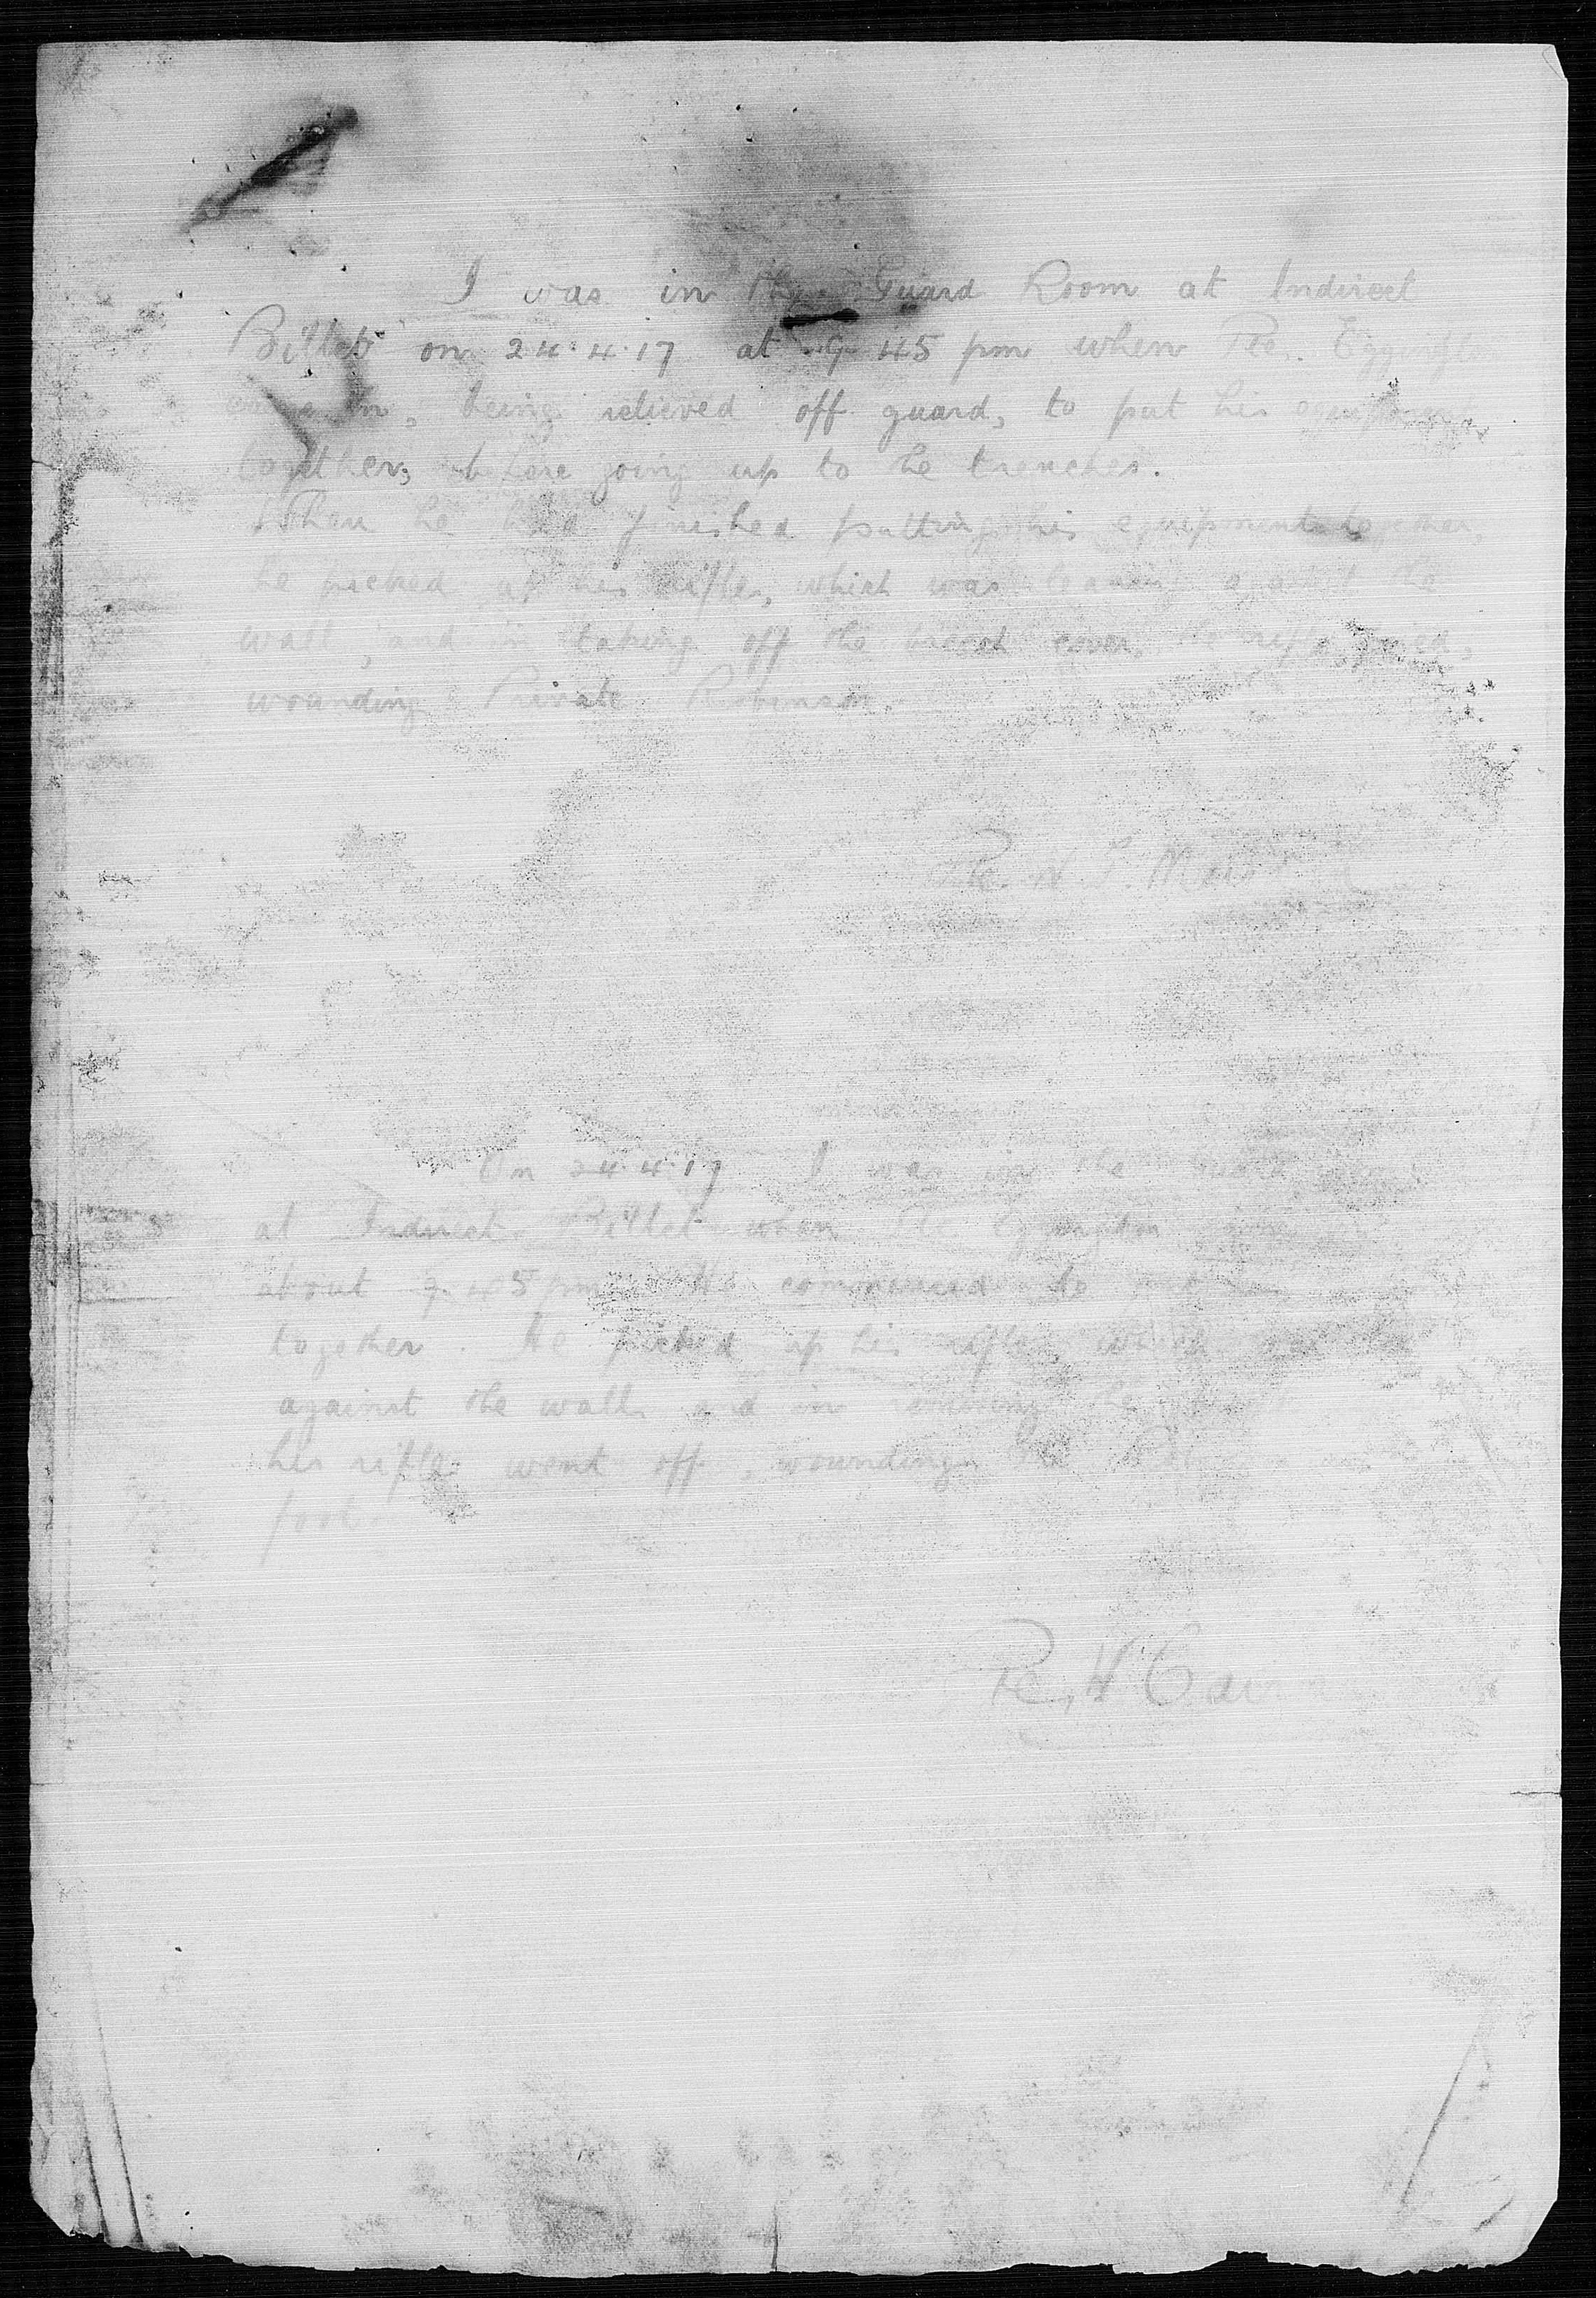 I was in the Guard Room at Indirect
Billets on 24.4.17 at 9.45 pm when Pte.
came in, being relieved off guard, to put his equipment
together, before going up to the trenches.
When he had finished putting his equipment together,
he picked up his rifle, which was leaning against the
wall, and in taking off the breech cover, the rifle fired,
wounding Private Robinson.
Pte. W. T.
On 24.4.17 I was in the Guard Room
at Indirect Billets when Pte. Eggington
about 9.45 pm. He commenced to
together. He picked up his rifle which was
against the wall, and in removing the
his rifle went off, wounding Pte
foot.
Pte. H.